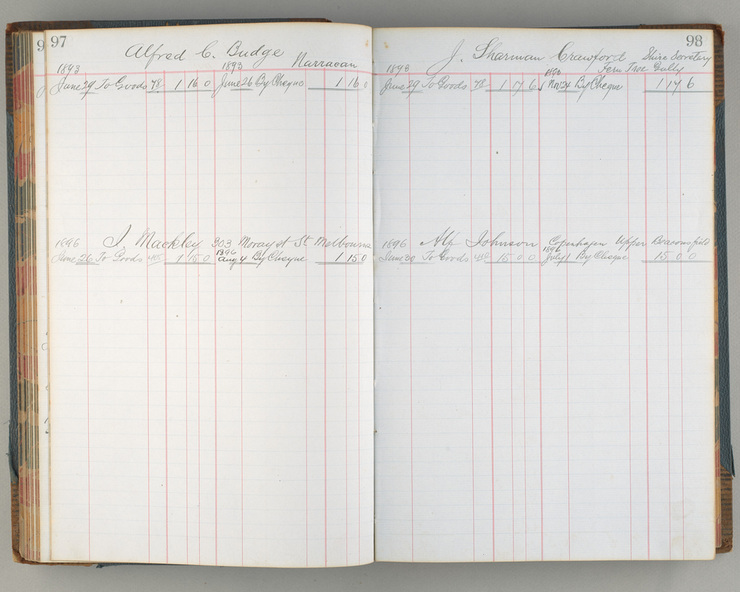 97
Alfred C. Budge
Narracan
1893 1893
June 29 To Goods 1 16 0 June 26 By Cheque 1 16 0
1896 J. Mackley 303 Moray St Sth Melbourne
1896
June 26 To Goods 1 15 0 Aug 4 By Cheque 1 15 0
98
J. Sharman Crawford Shire Secretary
Fern Tree Gully
1893
June 29 To Goods 78 1 17 6 Nov 24 By Cheque 1 17 6
1896 Alf Johnson Copenhagen Upper Beaconsfield
1896
June 30 To Goods 15 0 0 July 1 By Cheque 15 0 0